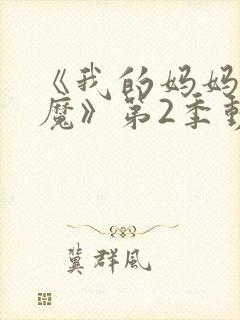 《我的妈妈
魔》第2季動
冀群风